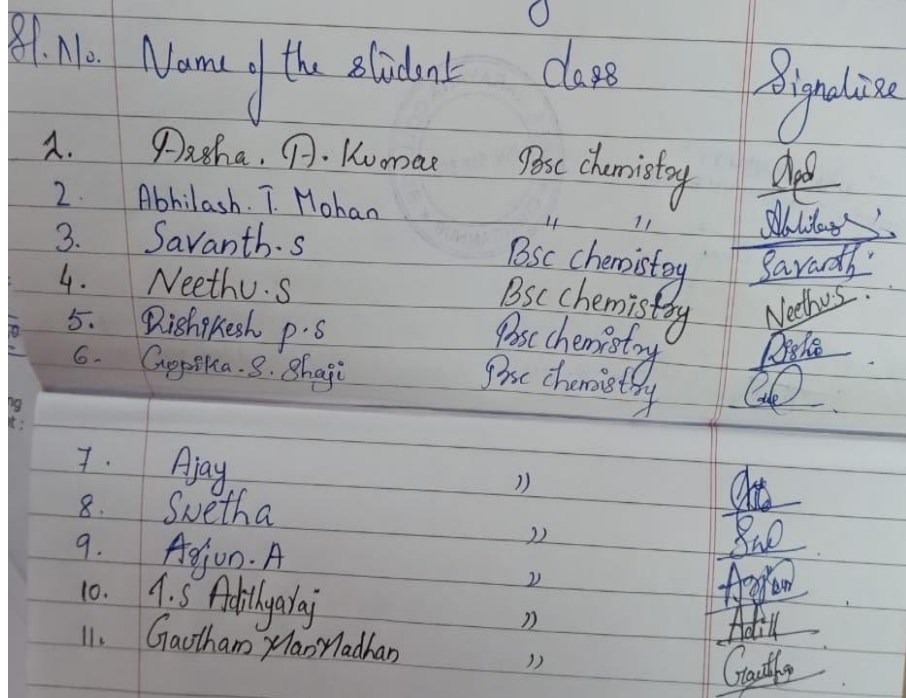 Sl. No. Name of the student class Signature
1. Arsha. A. Kumar Bsc chemistry
2. Abhilash. T. Mohan " " Abhilash
3. Savanth. s Bsc chemistry Savanth
4. Neethu. S Bsc chemistry Neethu.S
5. Rishikesh p.s Bsc chemistry Rishi
6. Gopika. S. Shaji Bsc chemistry
7. Ajay "
8. Swetha " Swe
9. Arjun. A " Arjun
10. A.S Adithyaraj " Adith
11. Gautham ManMadhan " Gautham